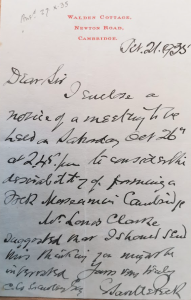 WALDEN COTTAGE,
NEWTON ROAD,
CAMBRIDGE.
Oct. 21. 1935
Dear Sir
I enclose a
notice of a meeting to be
held on Saturday Oct 26th
at 2.45 pm to consider the
desirability of forming a
Folk Museum in Cambridge
Mr. Louis Clarke
suggested that I should send
this that you might be
interested Yours very truly